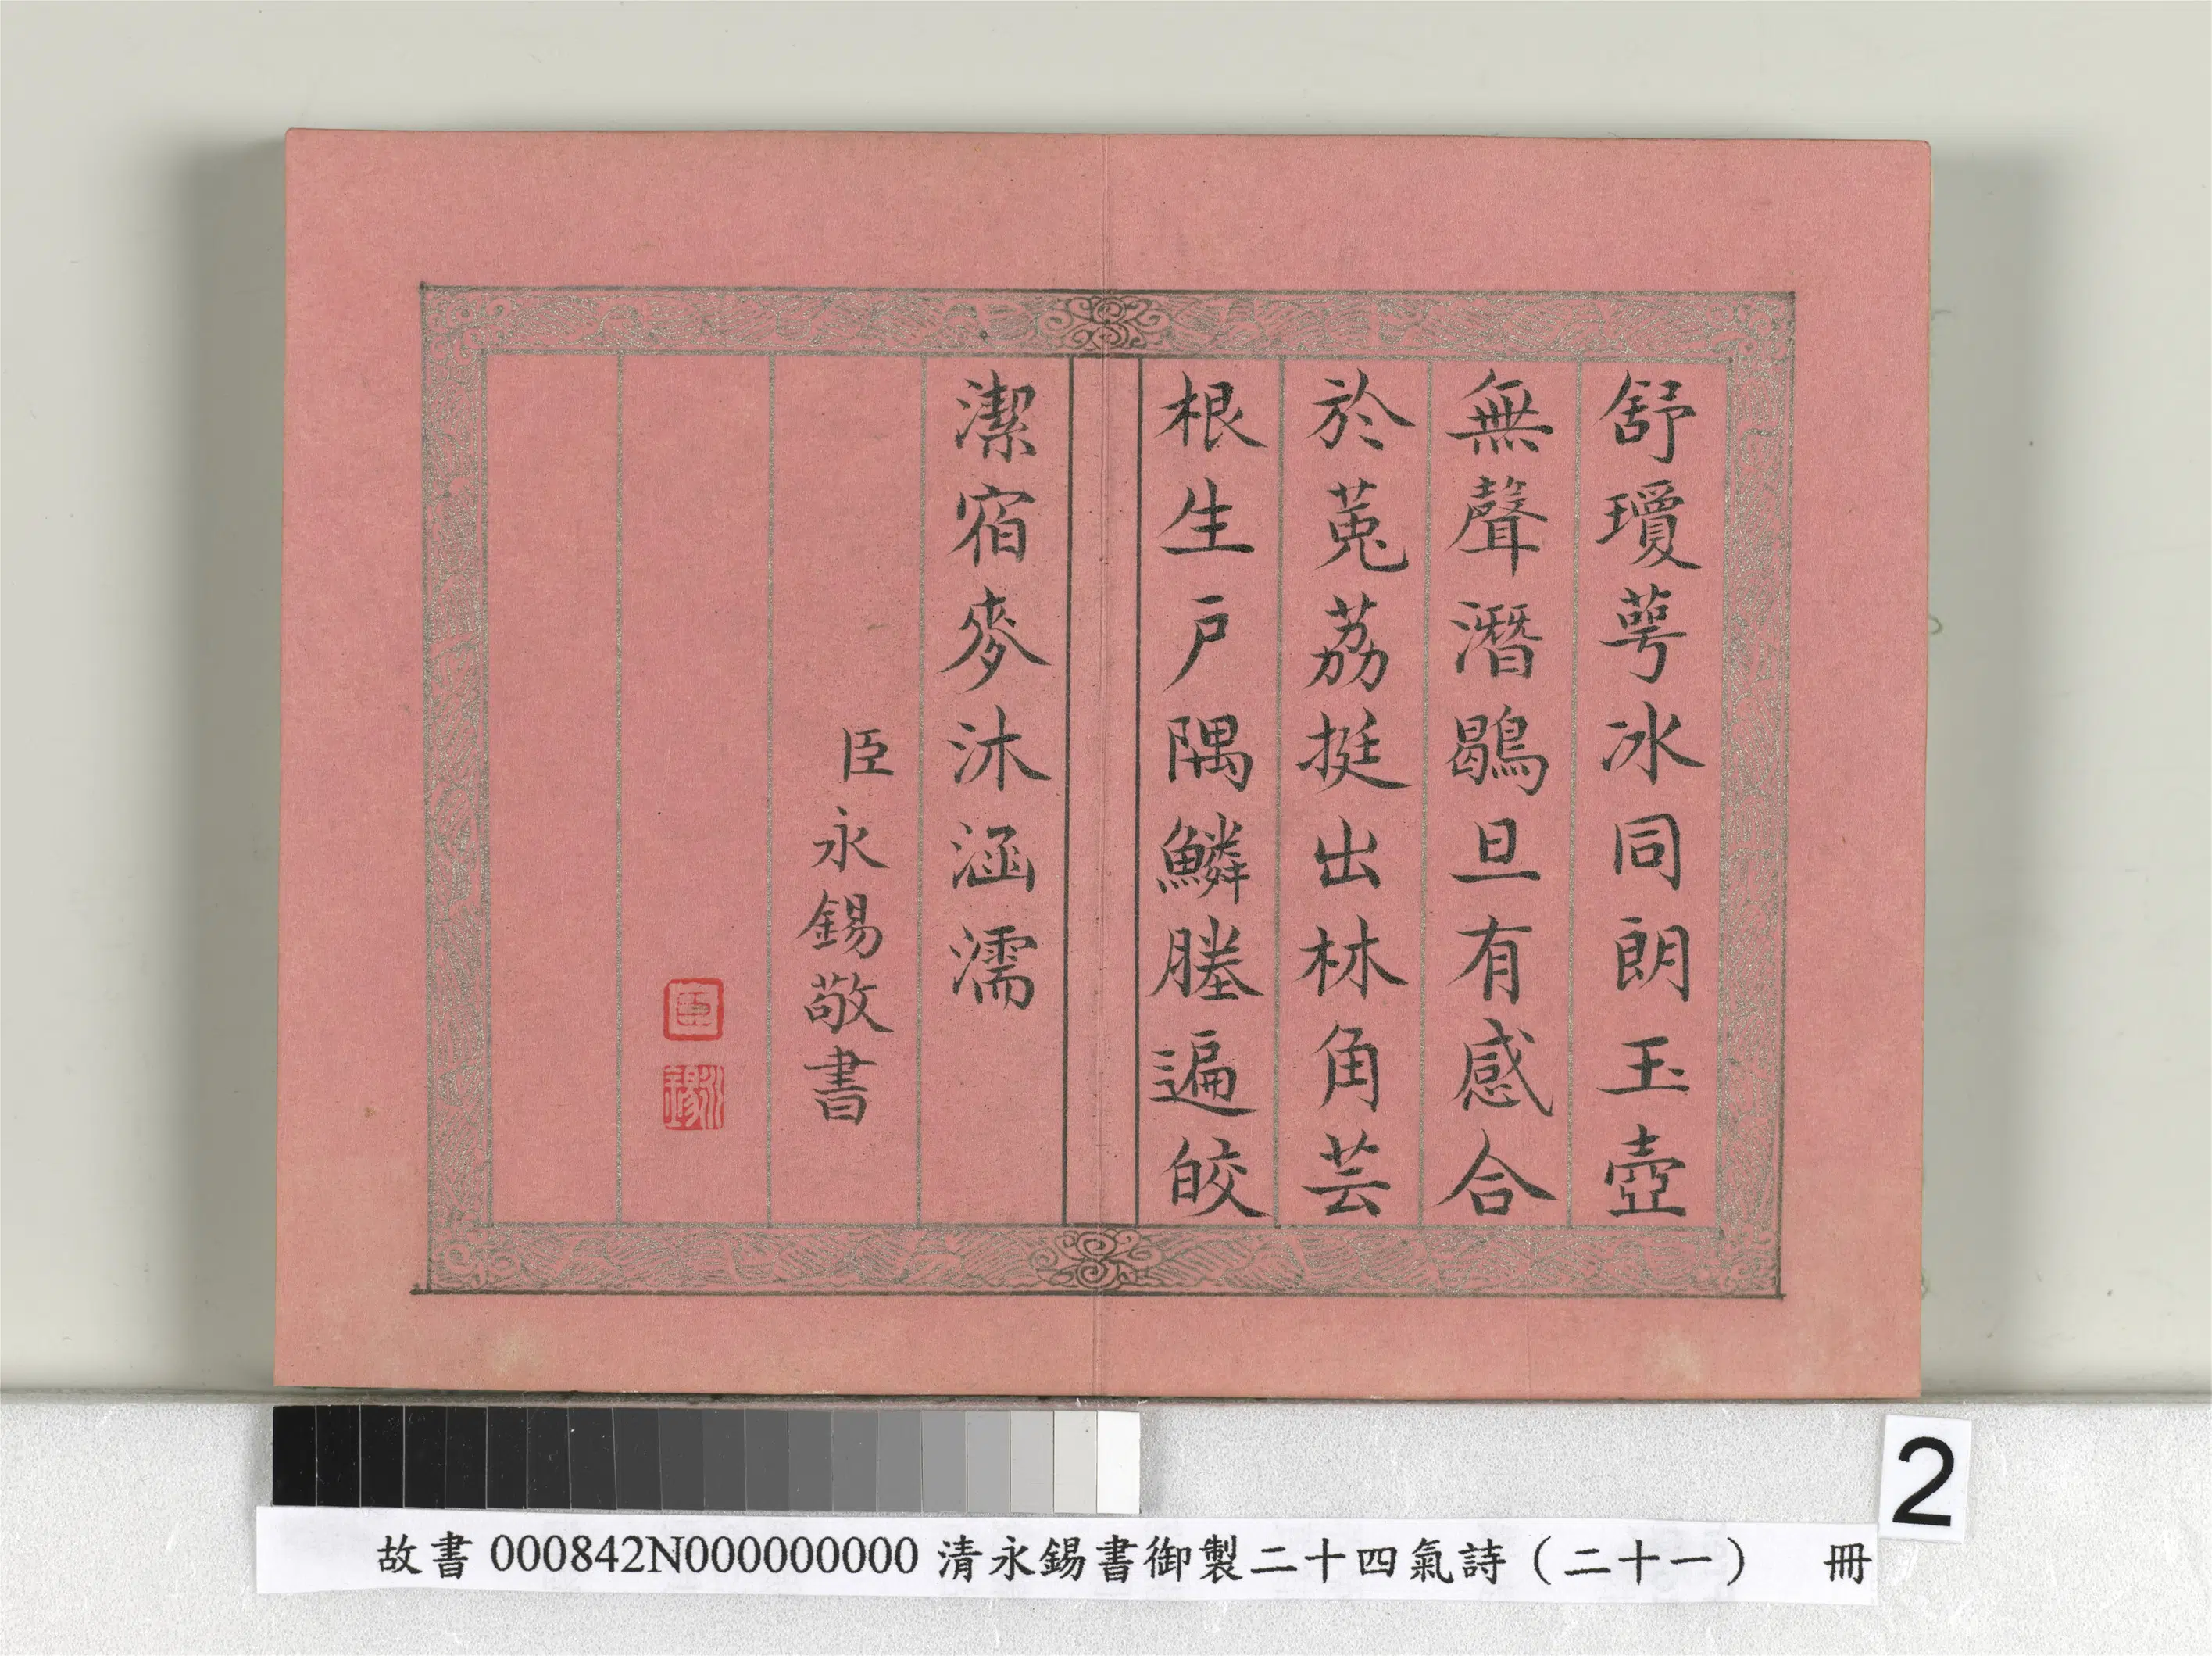 舒瓊萼冰同朗玉壺
無聲潛鶡旦有感合
於菟荔挺出林角芸
根生戶隅鱗塍遍皎
潔宿麥沐涵濡
臣永錫敬書
臣
永錫
2
故書 000842N000000000 清永錫書御製二十四氣詩（二十一） 冊